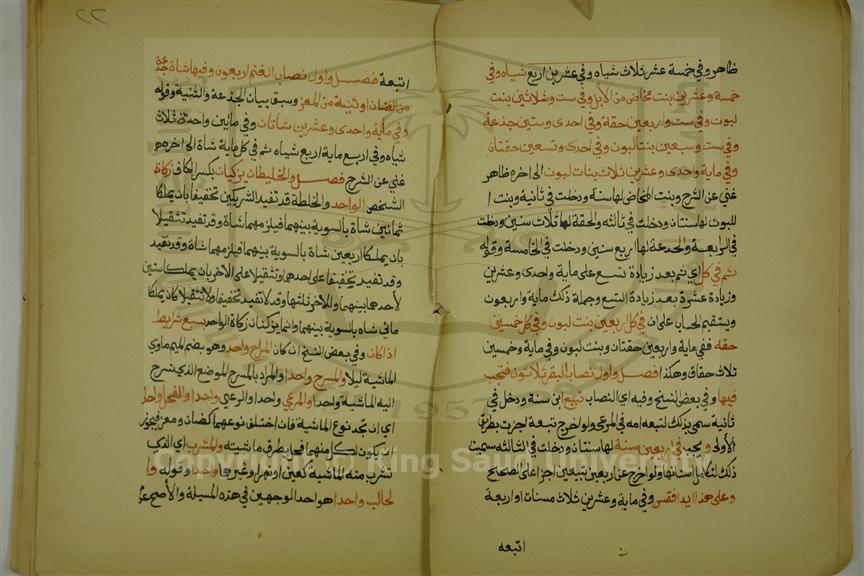 ظاهر وفي خمسة عشر ثلاث شياه وفي عشرين اربع شياه وفي
خمسة وعشرين بنت مخاض من الابل وفي ست وثلاثين بنت
لبون وفي ست واربعين حقة وفي احدى وستين جذعة
وفي ست وسبعين بنتا لبون وفي احدى وتسعين حقتان
وفي ماية واحدى وعشرين ثلاث بنات لبون الى اخره ظاهر
غني عن الشرح وبنت المخاض لها سنة ودخلت في ثانية وبنت ا
للبون لها سنتان ودخلت في ثالثه والحقة لها ثلاث سنين ودخلت
في الرابعة والجدعة لها اربع سنين ودخلت في الخامسة وقوله
ثم في كل اي ثم بعد زيادة تسع على ماية واحدى وعشرين
وزيادة عشرة بعد زيادة التسع وجملة ذلك ماية واربعون
ويستقيم الحساب على ان في كل اربعين بنت لبون وفي كل خمسين
حقه ففي ماية واربعين حقتان وبنت لبون وفي ماية وخمسين
ثلاث حقاق وهكذا فصل واول نصاب البقر ثلاثون فيجب
فيها وفي بعض النسخ وفيه اي النصاب تبيع ابن سنة ودخل في
ثانية سمي بذلك لتبعه امه في المرعى ولو اخرج تبعة اجزت بطريق
الأولى ويجب في اربعين مسنة لها سنتان ودخلت في الثالثه سميت
ذلك لتكامل اسنانها ولو اخرج عن اربعين تبيعين اجزا على الصحيح
وعلى هذا ابدا فقس وفي ماية وعشرين ثلاث مسنات او اربعة
اتبعه
٢٢
اتبعة فصل واول نصاب الغنم اربعون وفيها شاة جدعة
من الضان او ثنية من المعز وسبق بيان الجذعة والثنية وقوله
وفي ماية واحدى وعشرين شاتان وفي مايتين واحدة ثلاث
شياه وفي اربع ماية اربع شياه ثم في كل ماية شاة الى اخره
غني عن الشرح فصل والخليطان يزكيان بكسر الكاف زكاة
الشخص الواحد والخلطة قد تفيد الشريكين تخفيفا بان يملكا
ثمانين شاة بالسوية بينهما فيلزمهما شاة وقد تفيد تثقيلا
بان يملكا اربعين شاة بالسوية بينهما فيلزمهما شاة وقد تفيد
وقد تفيد تخفيفا على احدهما وتثقيلا على الاخر بان يملكا ستين
لأحدهما ثلثها وللآخر ثلثاها وقد لا تفيد تخفيفا ولا تثقيلا كان يملكا
مائتي شاه بالسوية بينهما وانما يزكيان زكاة الواحد بسبع شرايط
اذا كان وفي بعض النسخ ان كان المراح واحد وهو بضم الميم ماوي
الماشية ليلا والمسرح واحدا والمراد بالمسرح الموضع الذي تسرح
اليه الماشية واحدا والمرعي واحدا والرعي واحدا والفحل واحدا
اي ان تحد نوع الماشية فان اختلف نوعهما كضان ومعز فيجوز
ان يكون لكل منهما فحل يطرق ماشيته والمشرب اي الذي
تشرب منه الماشية كعين او نهر او غيرهما واحدا وقوله وا
لحالب واحدا هو احد الوجهين في هذه المسيلة والأصح